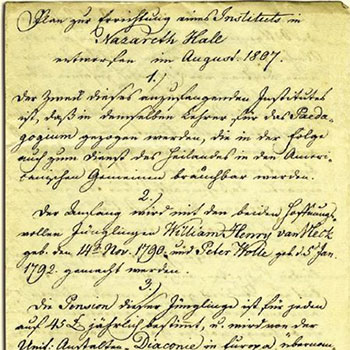 Plan zur Errichtung eines Instituts in
Nazareth Hall
entworfen im August. 1807.
1.)
Der Zweck dieses anzufangenden Institutes
ist, daß in demselben Lehrer für das Paeda-
gogium gezogen werden, die in der Folge
auch zum Dienst des Heilandes in den Ameri-
canischen Gemeinen brauchbar werden.
2.)
Der Anfang wird mit den beiden hoffnungs-
vollen Jünglingen William Henry van Vleck
geb. den 14t. Nov. 1790. und Peter Wolle geb. d 5 Jan.
1792. gemacht werden.
3.)
Die Pension dieser Jünglinge ist für jeden
auf 45 £ jährlich bestimt, u. wird von der
Unit: Anstalten-Diaconie in Europa übernom-